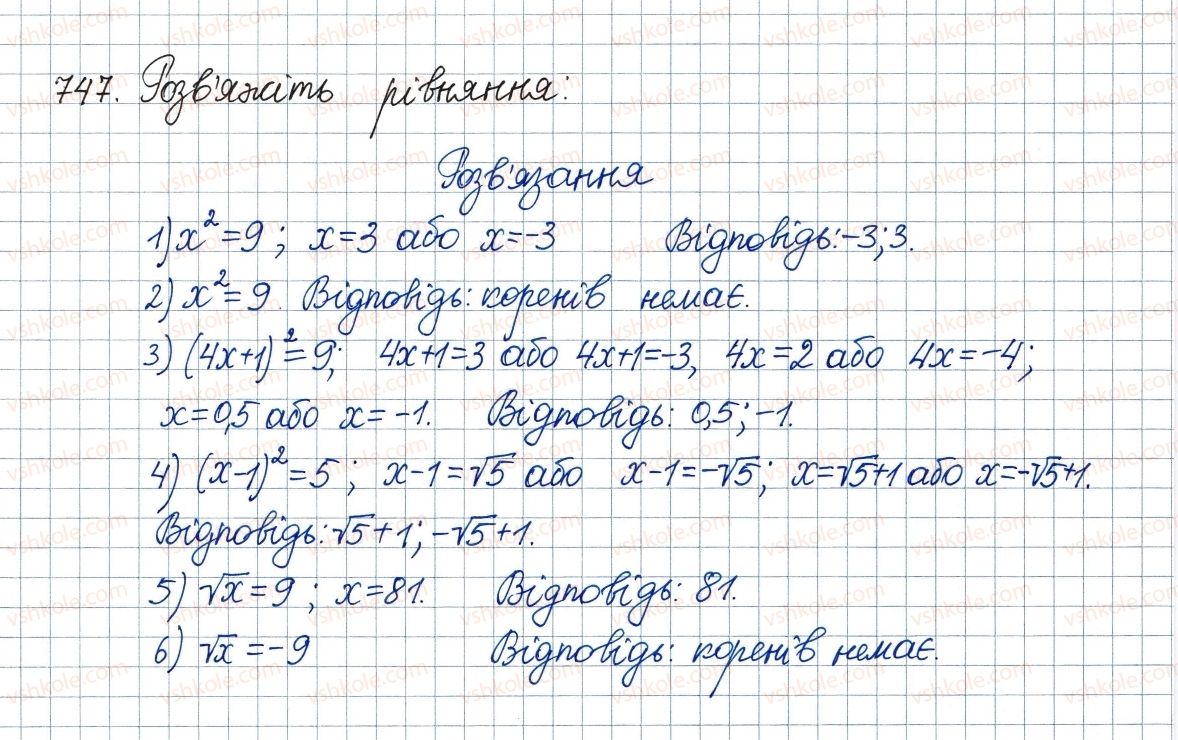 747. Розв'яжіть рівняння:
Розв'язання
1) x²=9; x=3 або x=-3 Відповідь:-3;3.
2) x²=9. Відповідь: коренів немає.
3) (4x+1)²=9; 4x+1=3 або 4x+1=-3, 4x=2 або 4x=-4;
x=0,5 або x=-1. Відповідь: 0,5;-1.
4) (x-1)²=5; x-1=√5 або x-1=-√5; x=√5+1 або x=-√5+1.
Відповідь: √5+1; -√5+1.
5) √x=9; x=81. Відповідь: 81.
6) √x=-9 Відповідь: коренів немає.